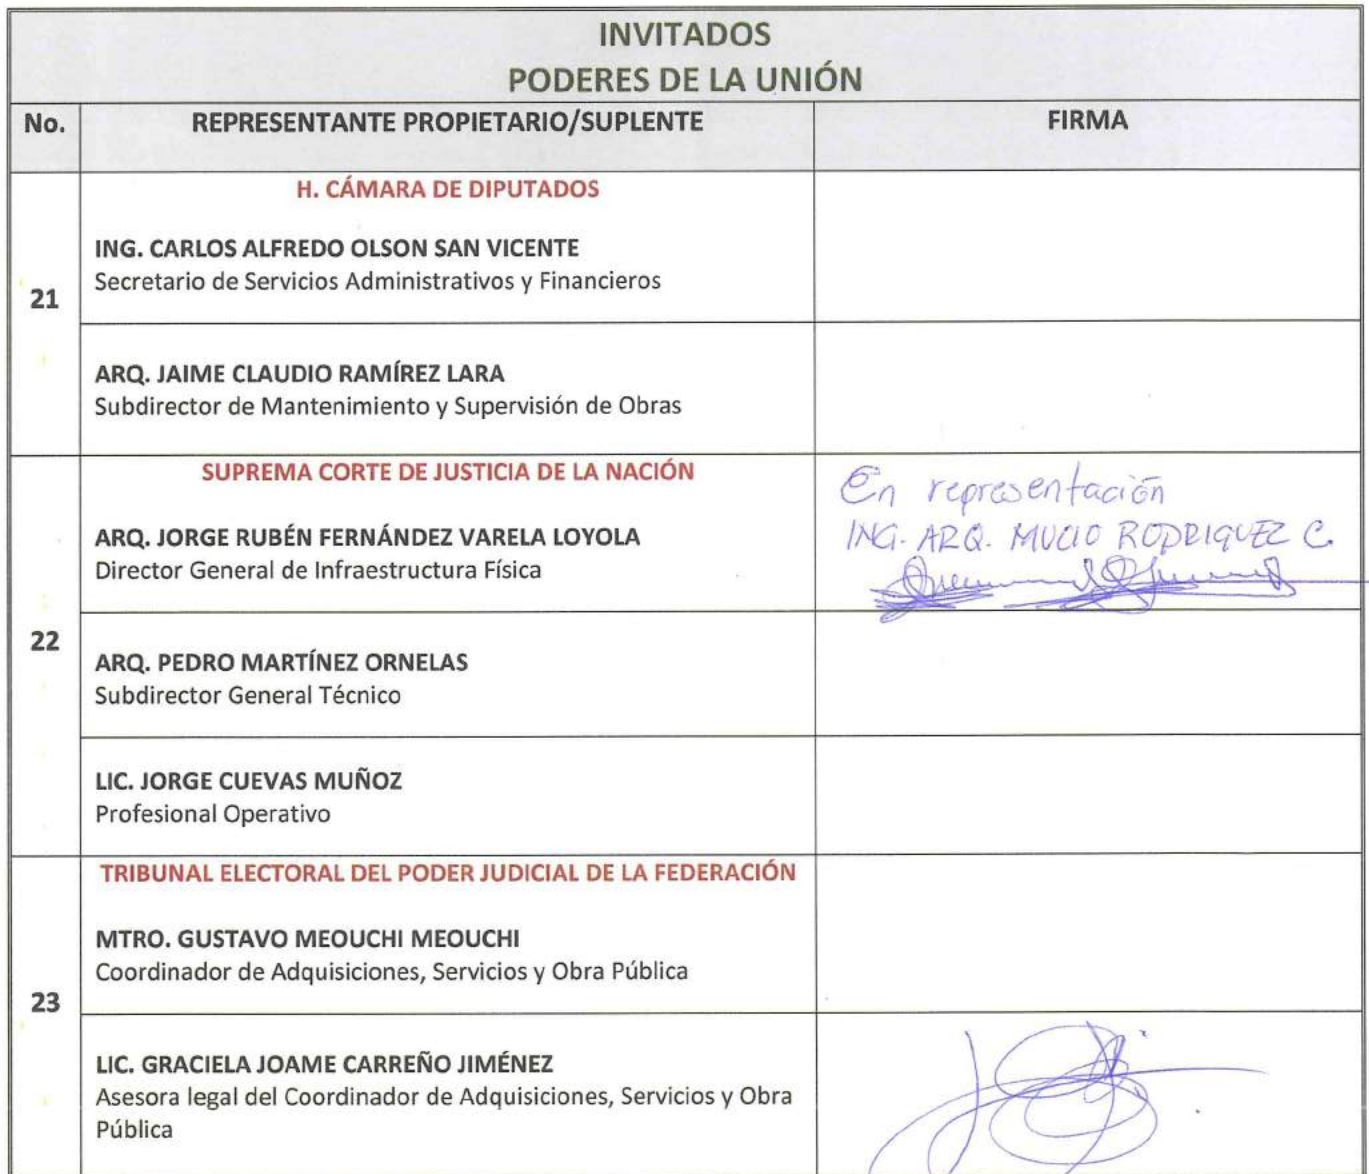 INVITADOS
PODERES DE LA UNIÓN
No. REPRESENTANTE PROPIETARIO/SUPLENTE FIRMA
21
H. CÁMARA DE DIPUTADOS
ING. CARLOS ALFREDO OLSON SAN VICENTE
Secretario de Servicios Administrativos y Financieros
ARQ. JAIME CLAUDIO RAMÍREZ LARA
Subdirector de Mantenimiento y Supervisión de Obras
22
SUPREMA CORTE DE JUSTICIA DE LA NACIÓN
ARQ. JORGE RUBÉN FERNÁNDEZ VARELA LOYOLA
Director General de Infraestructura Física
En representación
ING. ARQ. MUCIO RODRIGUEZ C.
ARQ. PEDRO MARTÍNEZ ORNELAS
Subdirector General Técnico
LIC. JORGE CUEVAS MUÑOZ
Profesional Operativo
23
TRIBUNAL ELECTORAL DEL PODER JUDICIAL DE LA FEDERACIÓN
MTRO. GUSTAVO MEOUCHI MEOUCHI
Coordinador de Adquisiciones, Servicios y Obra Pública
LIC. GRACIELA JOAME CARREÑO JIMÉNEZ
Asesora legal del Coordinador de Adquisiciones, Servicios y Obra
Pública